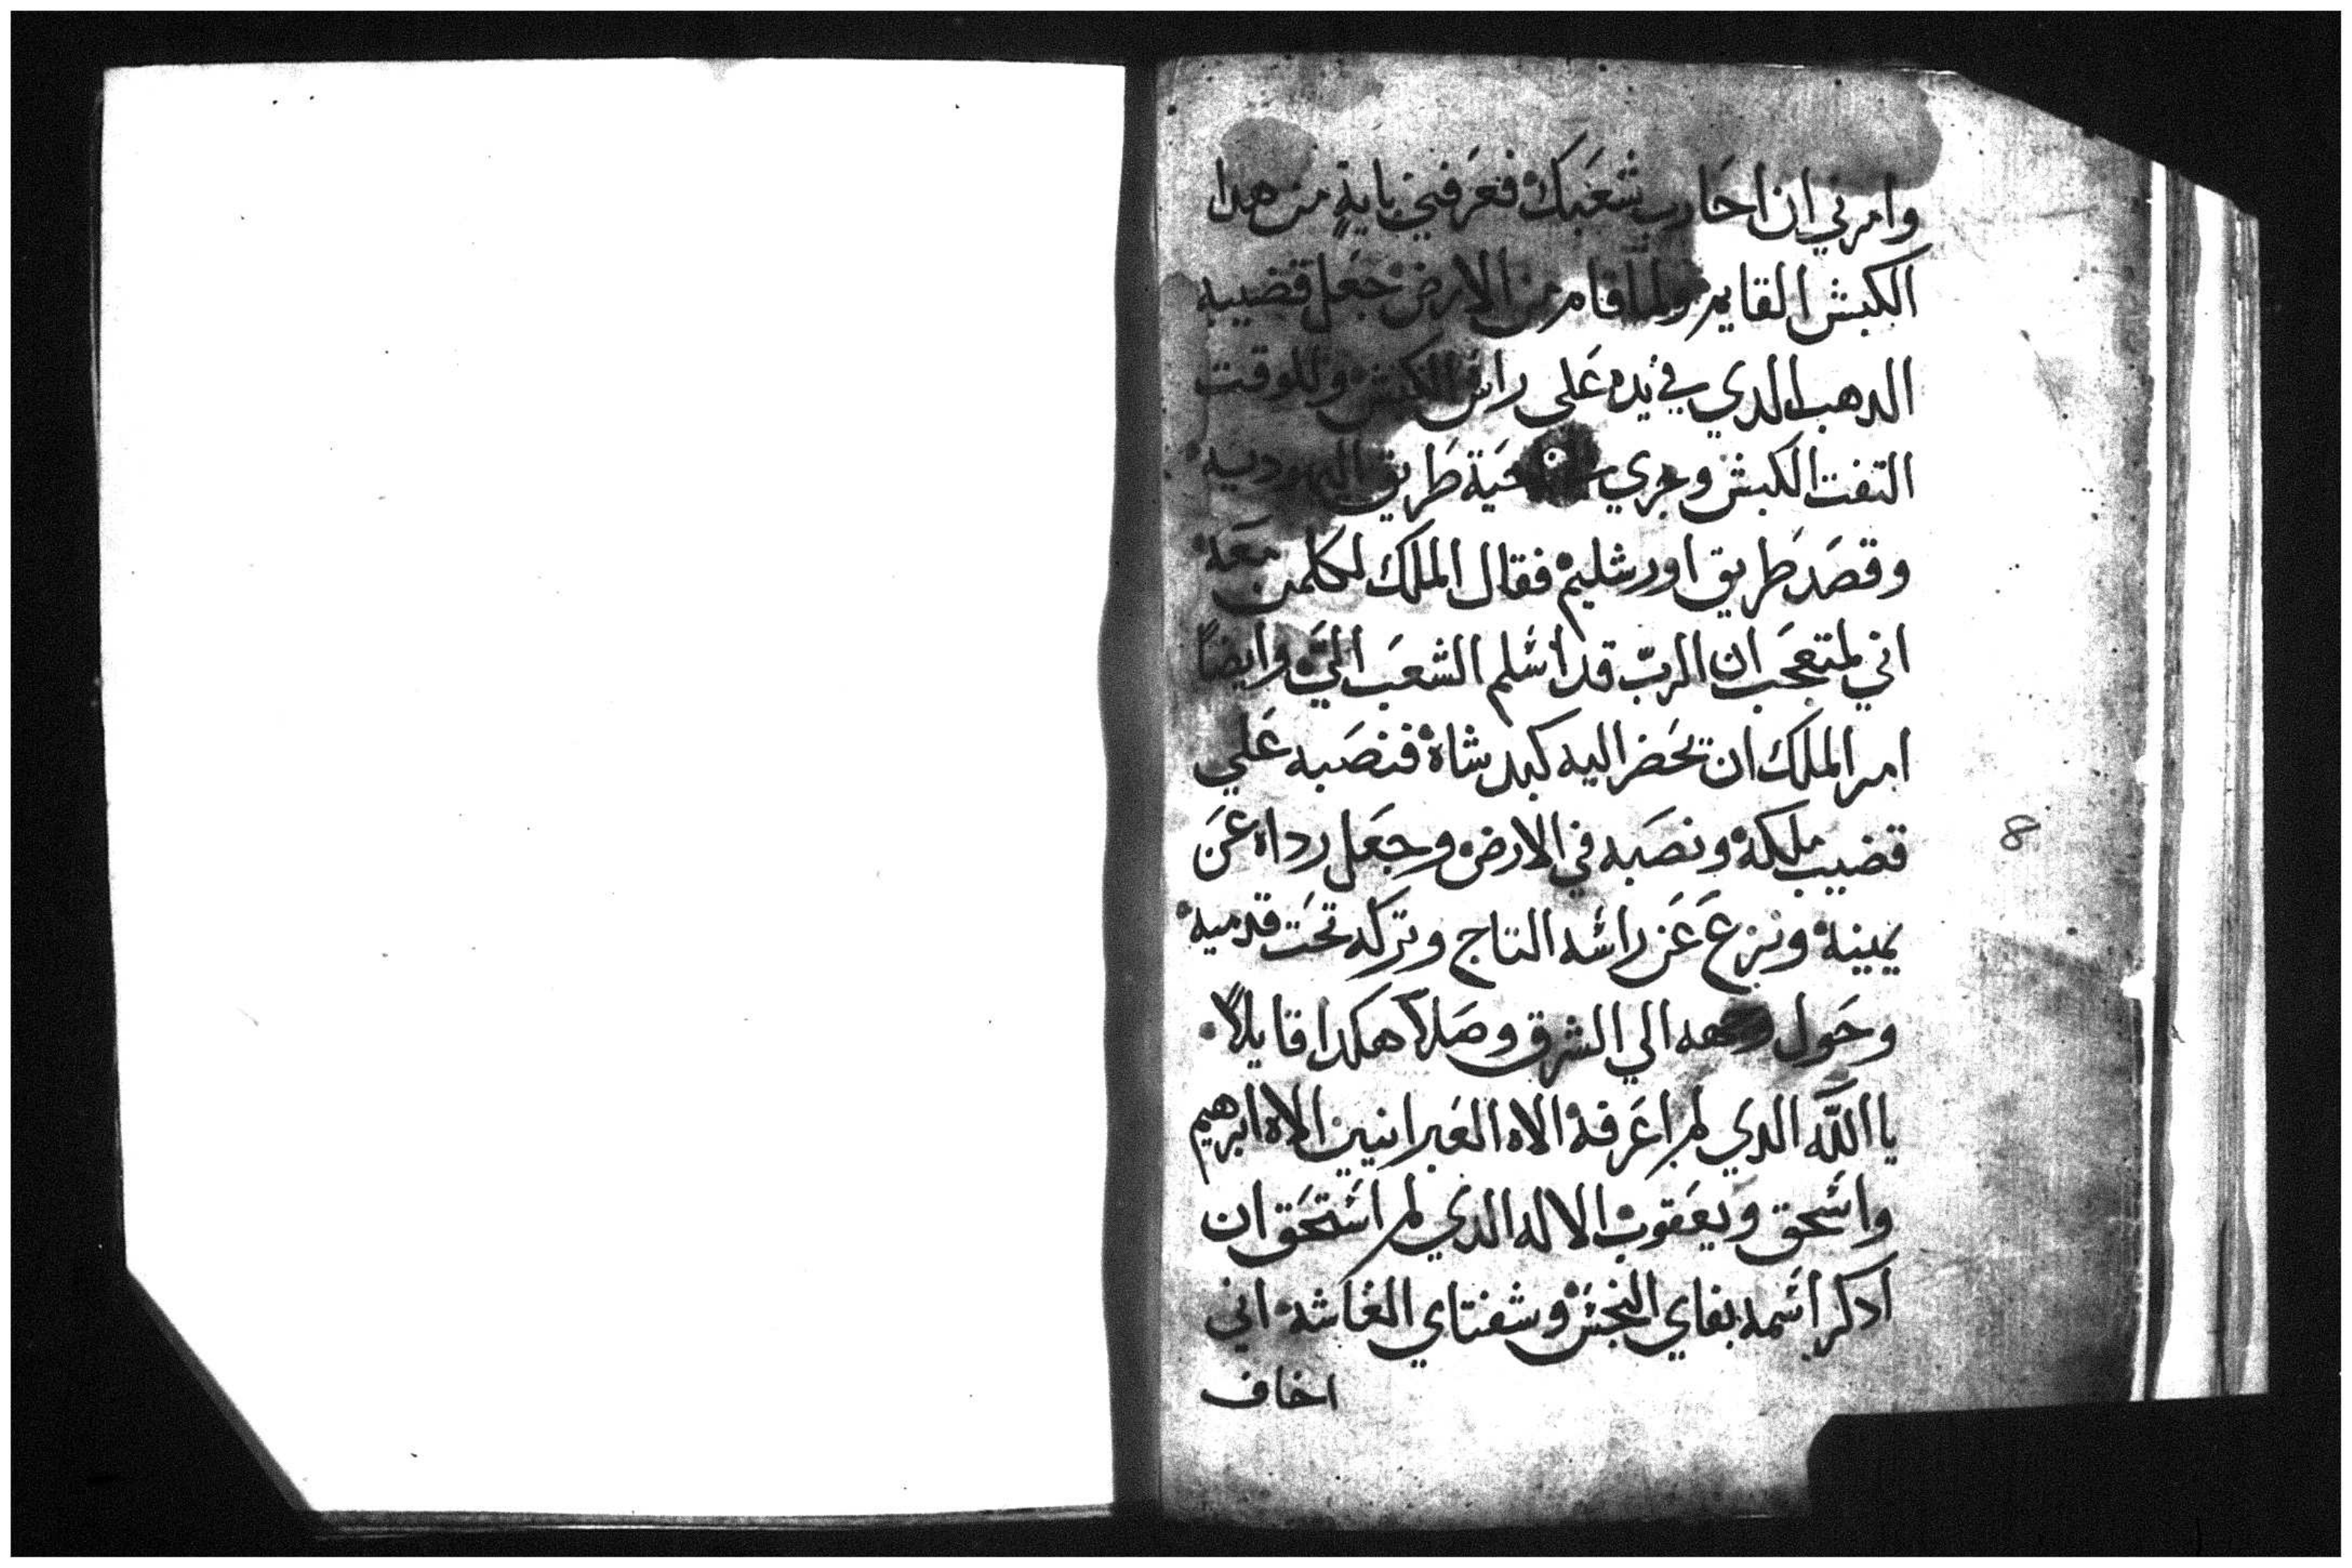 وامرني ان احارب شعبك فعرفني باية من هدا
الكبش القايم ولما قام من الارض جعل قضيبه
الدهب الدي في يده على راس الكبش وللوقت
التفت الكبش وجري ناحية طريق اليهودية
وقصد طريق اورشليم فقال الملك لكلمن معه
اني لمتعجب ان الرب قد اسلم الشعب الي وايضاً
امر الملك ان تحضر اليه كبد شاة فنصبه علي
قضيب ملكه ونصبه في الارض وجعل رداه عن
يمينه ونزع عن راسه التاج وتركه تحت قدميه
وحول وجهه الي الشرق وصلا هكدا قايلاً
يا الله الدي لم اعرفه الاه العبرانيين الاه ابرهيم
واسحق ويعقوب الاله الدي لم استحق ان
ادكر اسمه بفاي النجس وشفتاي الغاشه اني
اخاف
8